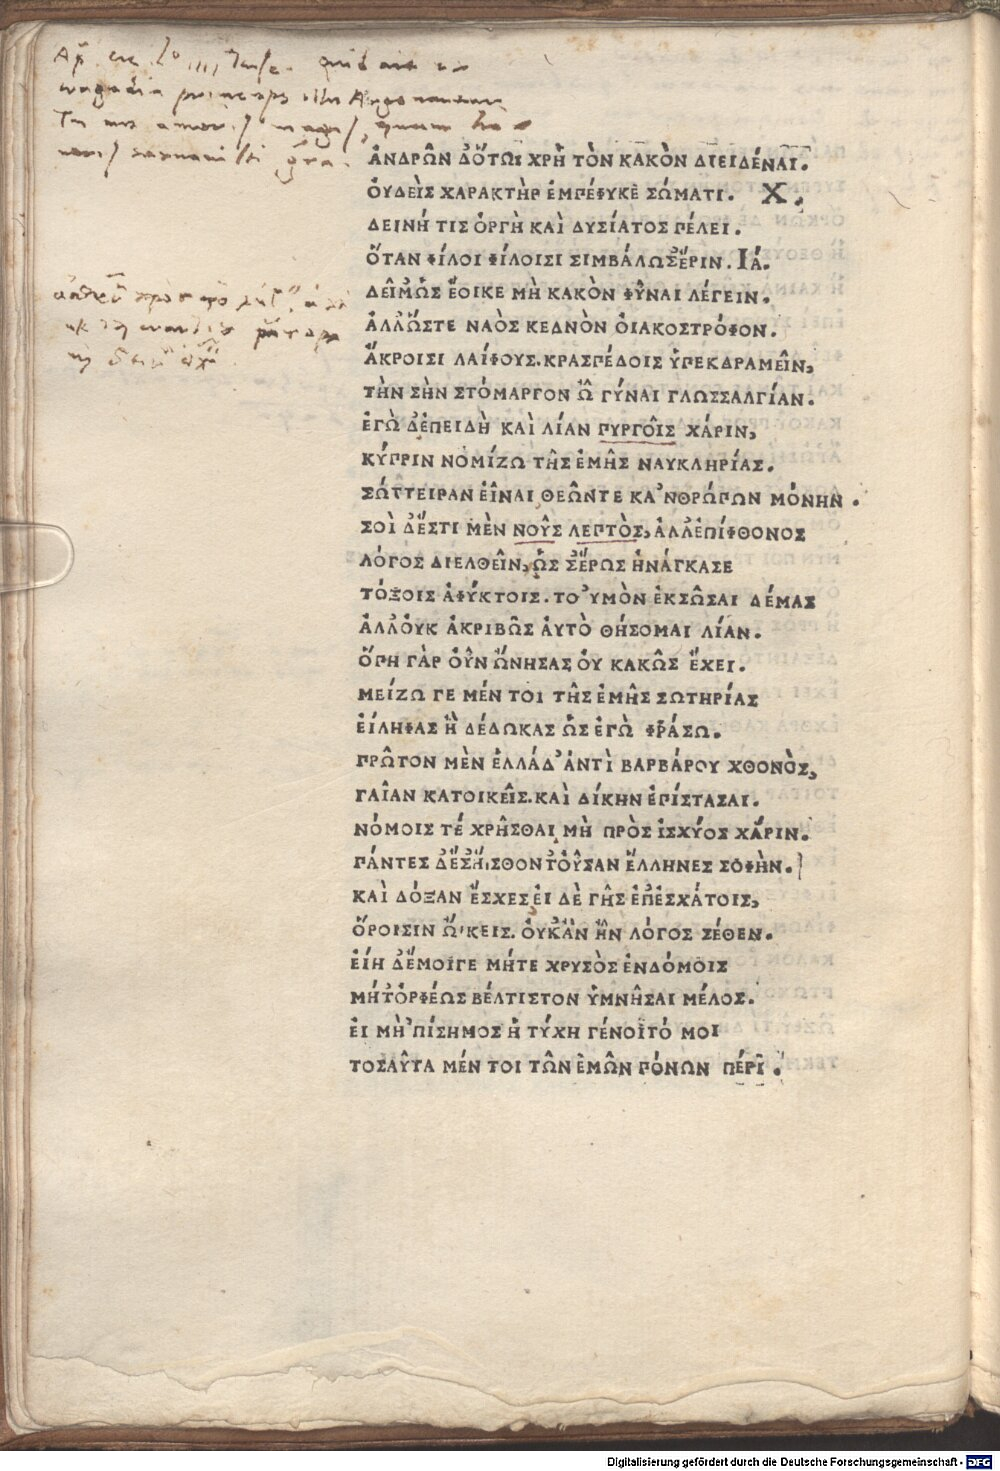 ἈΝΔΡΩ͂Ν ΔὍΤΩΙ ΧΡῊ ΤῸΝ ΚΑΚῸΝ ΔΙΕΙΔΈΝΑΙ.
ὈΥΔΕῚΣ ΧΑΡΑΚΤῊΡ ἘΜΠΈΦΥΚΕ ΣΏΜΑΤΙ. Χ.
ΔΕΙΝΉ ΤΙΣ ὈΡΓῊ ΚΑῚ ΔΥΣΊΑΤΟΣ ΠΈΛΕΙ.
ὍΤΑΝ ΦΊΛΟΙ ΦΊΛΟΙΣΙ ΣΙΜΒΆΛΩΣ ἜΡΙΝ. ΙΆ.
ΔΕΙ͂ΜΏΣ ἜΟΙΚΕ ΜῊ ΚΑΚῸΝ ΦΥ͂ΝΑΙ ΛΈΓΕΙΝ.
ἈΛΛΏΣΤΕ ΝΑῸΣ ΚΕΔΝῸΝ ὈΙΑΚΟΣΤΡΌΦΟΝ.
ἌΚΡΟΙΣΙ ΛΑΊΦΟΥΣ.ΚΡΑΣΠΈΔΟΙΣ ὙΠΕΚΔΡΑΜΕΙ͂Ν,
ΤῊΝ ΣῊΝ ΣΤΌΜΑΡΓΟΝ Ὦ ΓΎΝΑΙ ΓΛΩΣΣΑΛΓΊΑΝ.
ἘΓῺ ΔἘΠΕΙΔῊ ΚΑῚ ΛΊΑΝ ΠΥΡΓΟΙ͂Σ ΧΆΡΙΝ,
ΚΎΠΡΙΝ ΝΟΜΊΖΩ ΤΗ͂Σ ἘΜΗ͂Σ ΝΑΥΚΛΗΡΊΑΣ.
ΣΏΤΤΕΙΡΑΝ ἘΙ͂ΝΑΙ ΘΕΩ͂ΝΤΕ ΚΑ'ΝΘΡΏΠΩΝ ΜΌΝΗΝ.
ΣΟῚ ΔἜΣΤΙ ΜῈΝ ΝΟΥ͂Σ ΛΕΠΤῸΣ, ἈΛΛἘΠΊΦΘΟΝΟΣ
ΛΌΓΟΣ ΔΙΕΛΘΕΙ͂Ν, ὩΣ ΣἜΡΩΣ ἨΝΆΓΚΑΣΕ
ΤΌΞΟΙΣ ἈΦΎΚΤΟΙΣ.ΤΟ'ΥΜῸΝ ἘΚΣΩ͂ΣΑΙ ΔΈΜΑΣ
ἈΛΛὈΥΚ ἈΚΡΙΒΩ͂Σ ἈΥΤῸ ΘΉΣΟΜΑΙ ΛΊΑΝ.
ὍΠΗ ΓᾺΡ ὈΥ͂Ν ὬΝΗΣΑΣ ὈΥ ΚΑΚΩ͂Σ ἜΧΕΙ.
ΜΕΊΖΩ ΓΕ ΜΈΝ ΤΟΙ ΤΗ͂Σ ἘΜΗ͂Σ ΣΩΤΗΡΊΑΣ
ἘΊΛΗΦΑΣ Ἢ ΔΈΔΩΚΑΣ ὩΣ ἘΓῺ ΦΡΆΣΩ.
ΠΡΩ͂ΤΟΝ ΜῈΝ ἙΛΛΆΔ'ἈΝΤῚ ΒΑΡΒΆΡΟΥ ΧΘΟΝῸΣ,
ΓΑΙ͂ΑΝ ΚΑΤΟΙΚΕΙ͂Σ.ΚΑῚ ΔΊΚΗΝ ἘΠΊΣΤΑΣΑΙ.
ΝΌΜΟΙΣ ΤΈ ΧΡΗ͂ΣΘΑΙ ΜῊ ΠΡῸΣ ἸΣΧΎΟΣ ΧΆΡΙΝ.
ΠΆΝΤΕΣ ΔἜΣΉΙΣΘΟΝΤὈΥ͂ΣΑΝ ἝΛΛΗΝΕΣ ΣΟΦῊΝ.
ΚΑῚ ΔΌΞΑΝ ἜΣΧΕΣ ἘΙ ΔῈ ΓΗ͂Σ ἘΠἘΣΧΆΤΟΙΣ,
ὍΡΟΙΣΙΝ Ὤ'ΚΕΙΣ. ὈΥΚᾺΝ ἮΝ ΛΌΓΟΣ ΣΈΘΕΝ.
ἘΊΗ ΔἜΜΟΙΓΕ ΜΉΤΕ ΧΡΥΣῸΣ ἘΝΔΌΜΟΙΣ
ΜΗΤὈΡΦΈΩΣ ΒΈΛΤΙΣΤΟΝ ὙΜΝΗ͂ΣΑΙ ΜΈΛΟΣ.
ἘΙ ΜΗ'ΠΊΣΗΜΟΣ Ἡ ΤΎΧΗ ΓΈΝΟΙΤΌ ΜΟΙ
ΤΟΣΑΥ͂ΤΑ ΜΈΝ ΤΟΙ ΤΩ͂Ν ἘΜΩ͂Ν ΠΌΝΩΝ ΠΈΡΙ.
Digitalisierung gefördert durch die Deutsche Forschungsgemeinschaft - DFG